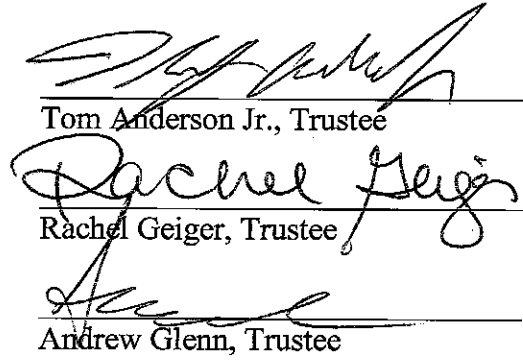 Tom Anderson Jr., Trustee
Rachel Geiger
Rachel Geiger, Trustee
Andrew Glenn, Trustee